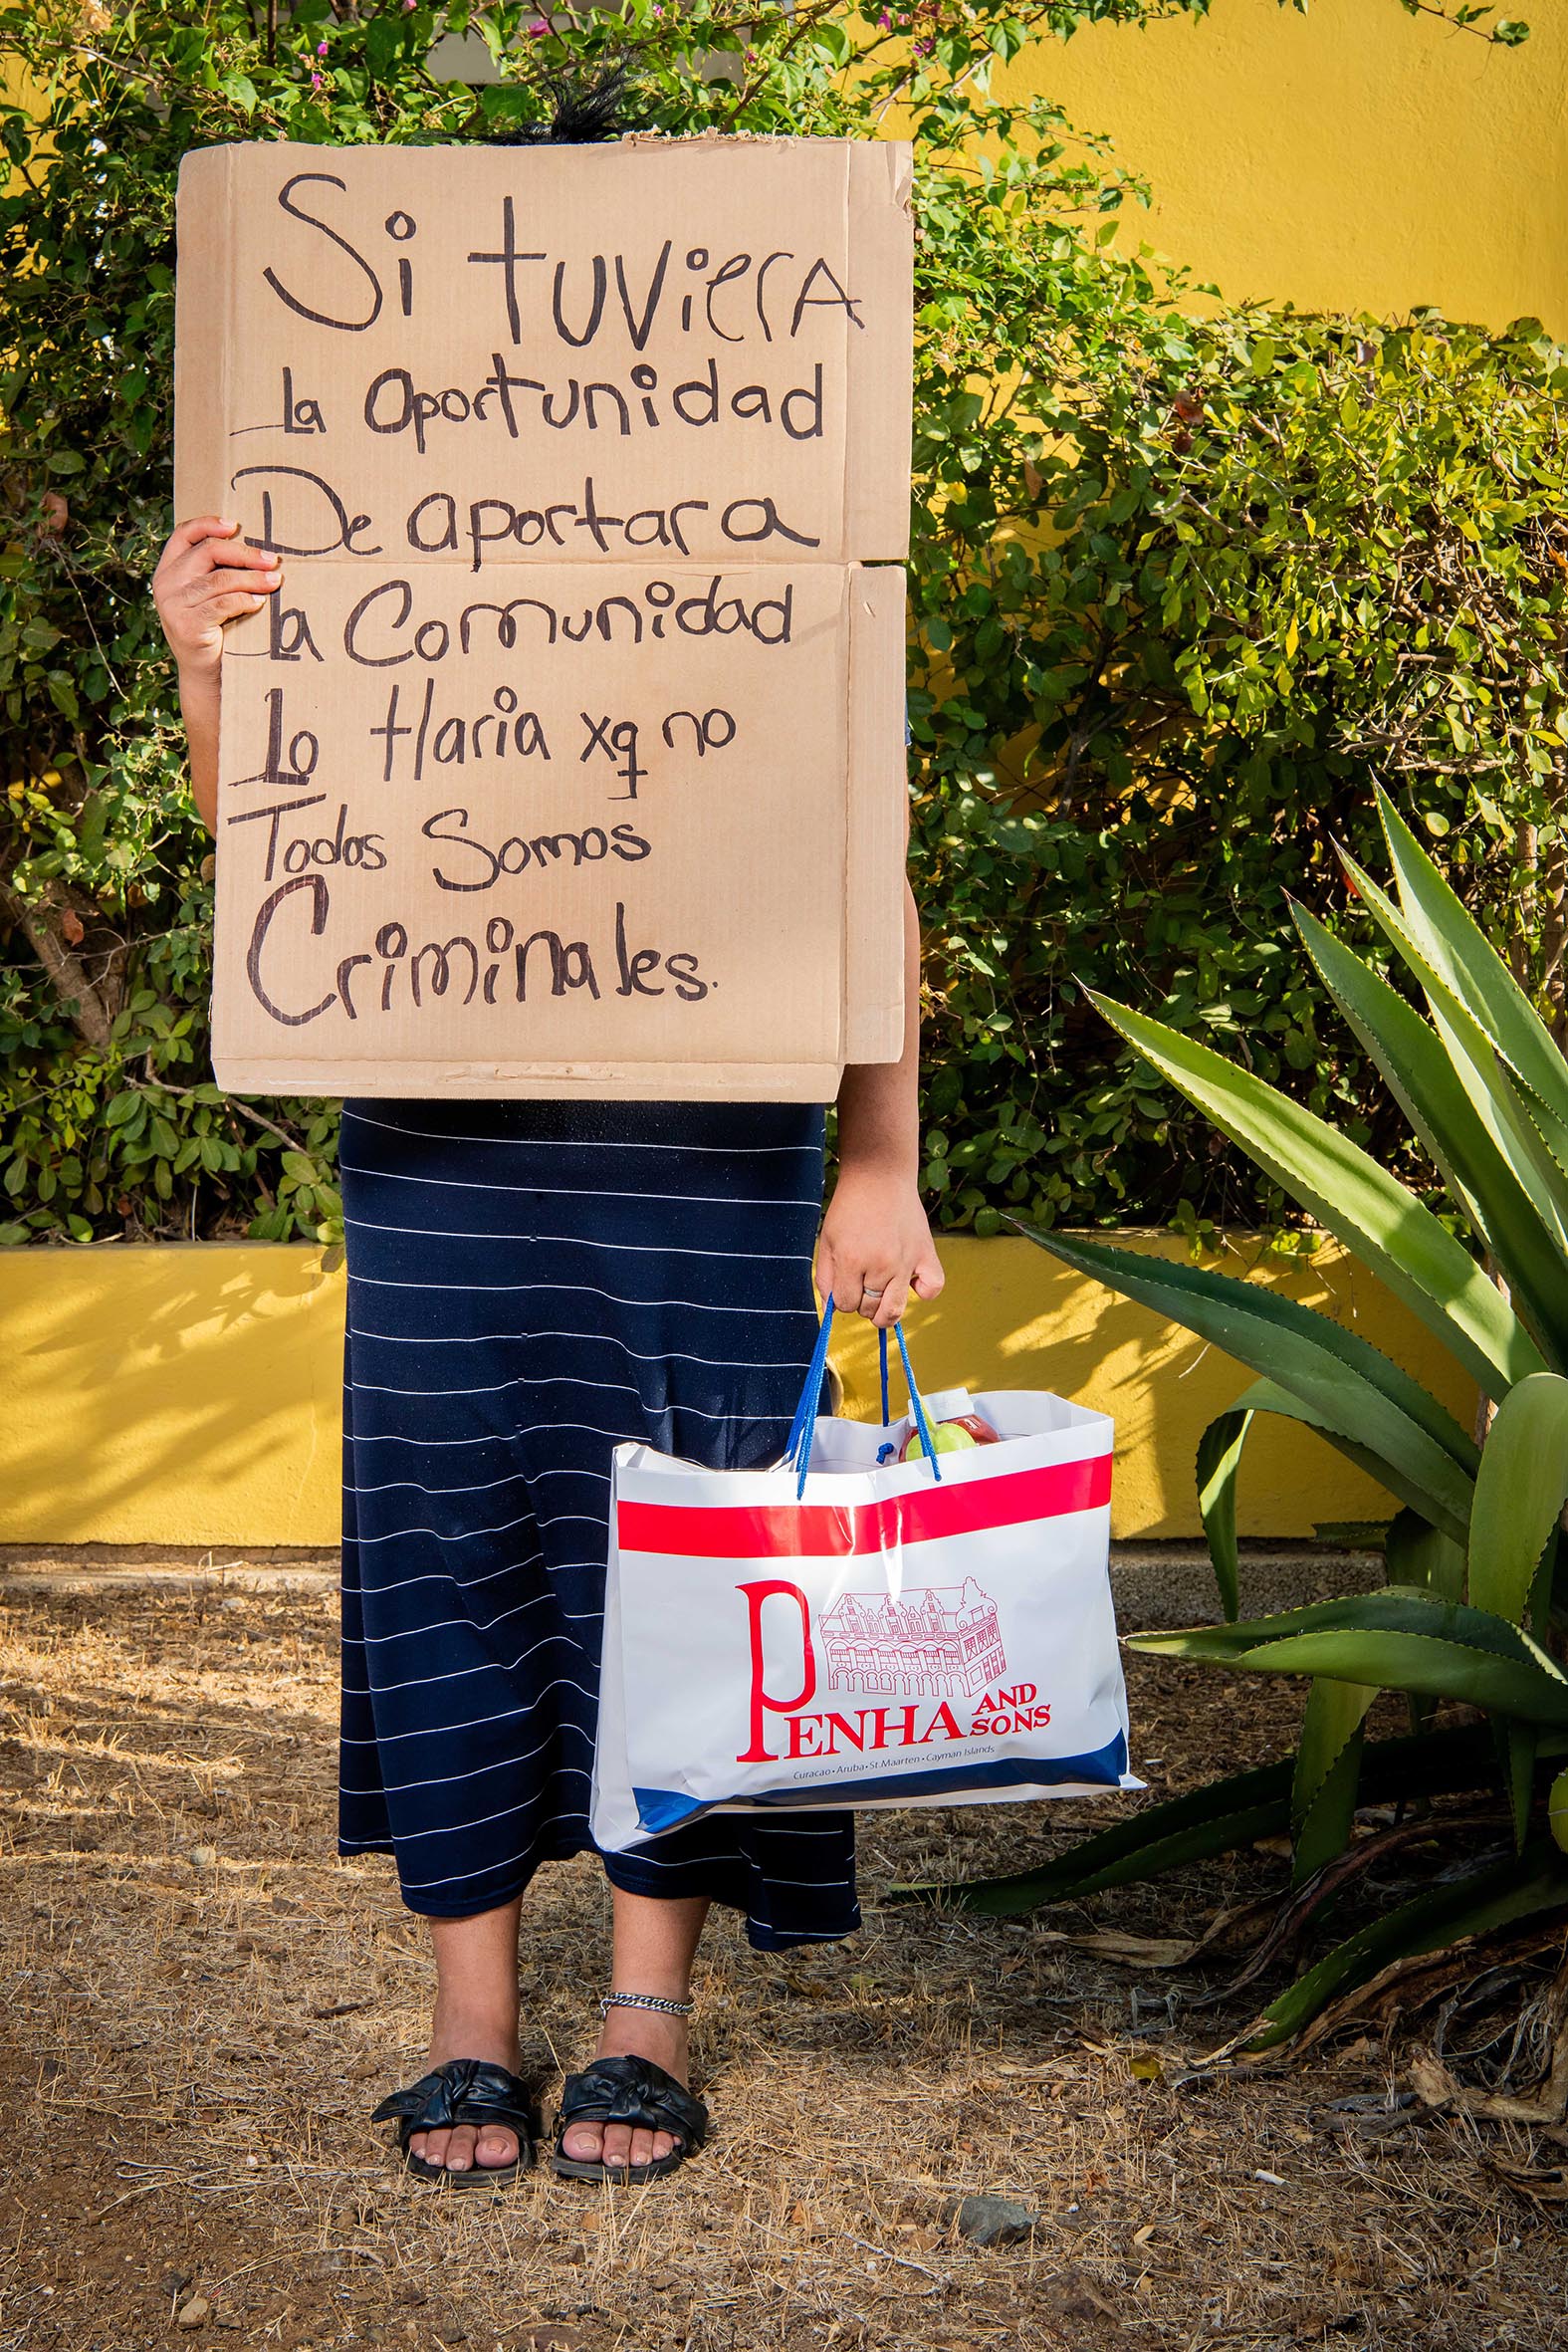 Si tuvierA
la oportunidad
De aportar a
la Comunidad
Lo Haria xq no
Todos Somos
Criminales.
PENHA AND SONS
Curacao • Aruba • St.Maarten • Cayman Islands